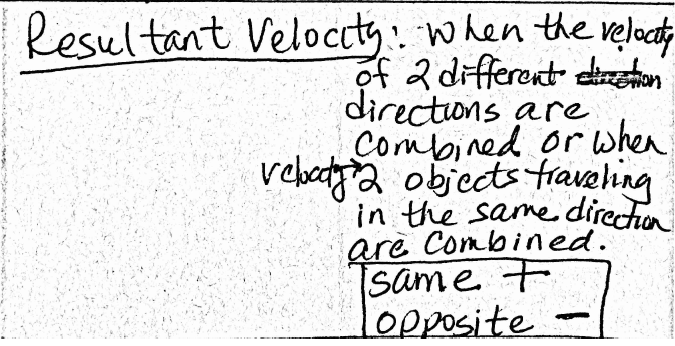 Resultant Velocity: When the velocity
of 2 different direction
directions are
combined or when
velocity→2 objects traveling
in the same direction
are combined.
same +
opposite −